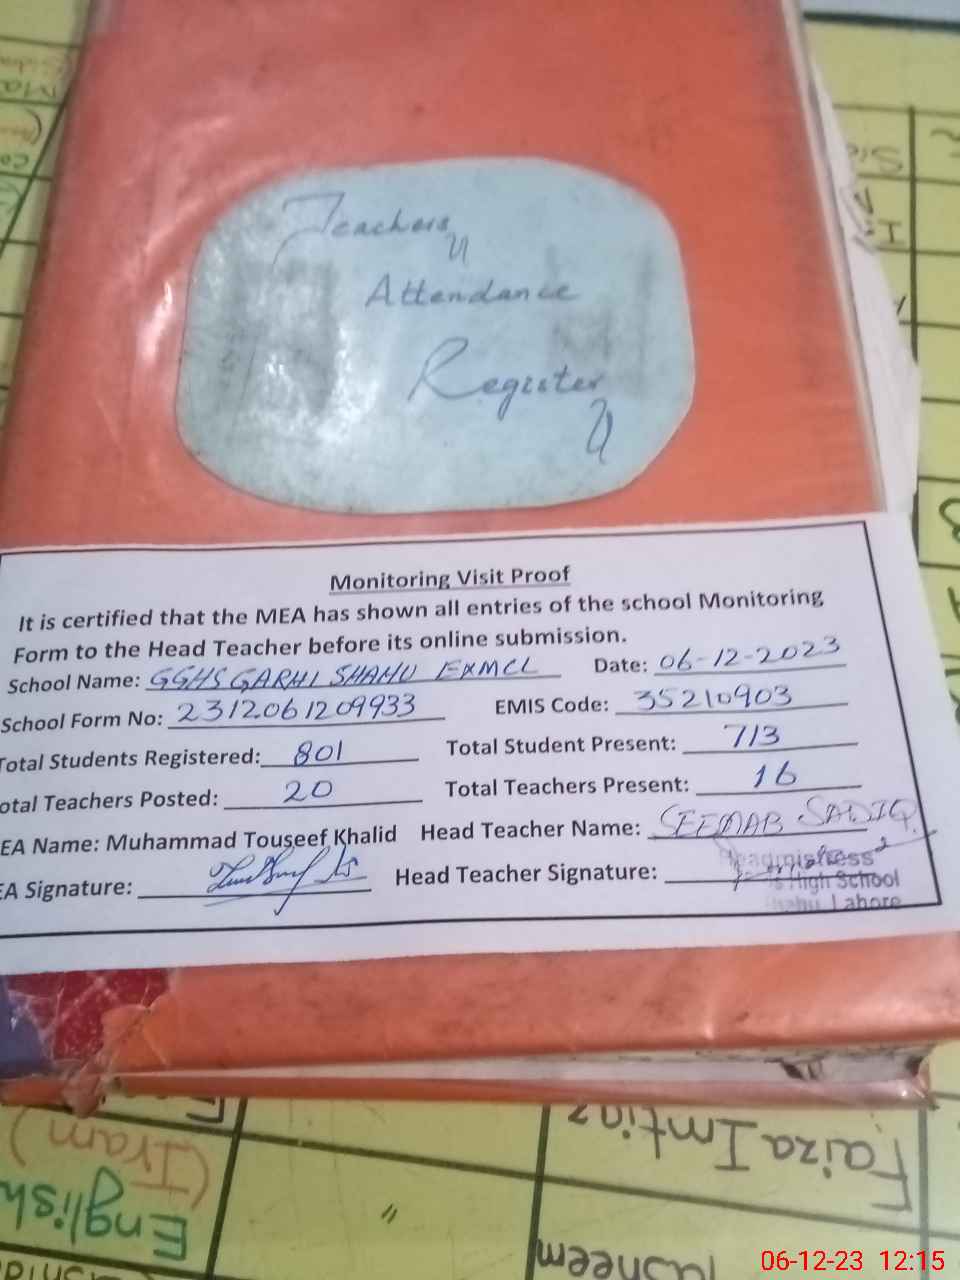 Teachers
Attendance
Register
Monitoring Visit Proof
It is certified that the MEA has shown all entries of the school Monitoring
Form to the Head Teacher before its online submission.
School Name: GGHS GARHI SHAHU EXMCL Date: 06-12-2023
School Form No: 2312061209933 EMIS Code: 35210903
Total Students Registered: 801 Total Student Present: 713
otal Teachers Posted: 20 Total Teachers Present: 16
EA Name: Muhammad Touseef Khalid Head Teacher Name: SEEMAB SADIQ
EA Signature: Head Teacher Signature:
Headmistress
High School
Shahu Lahore
Faiza Imtiaz
(Iram)
English
"
Tasneem
06-12-23 12:15